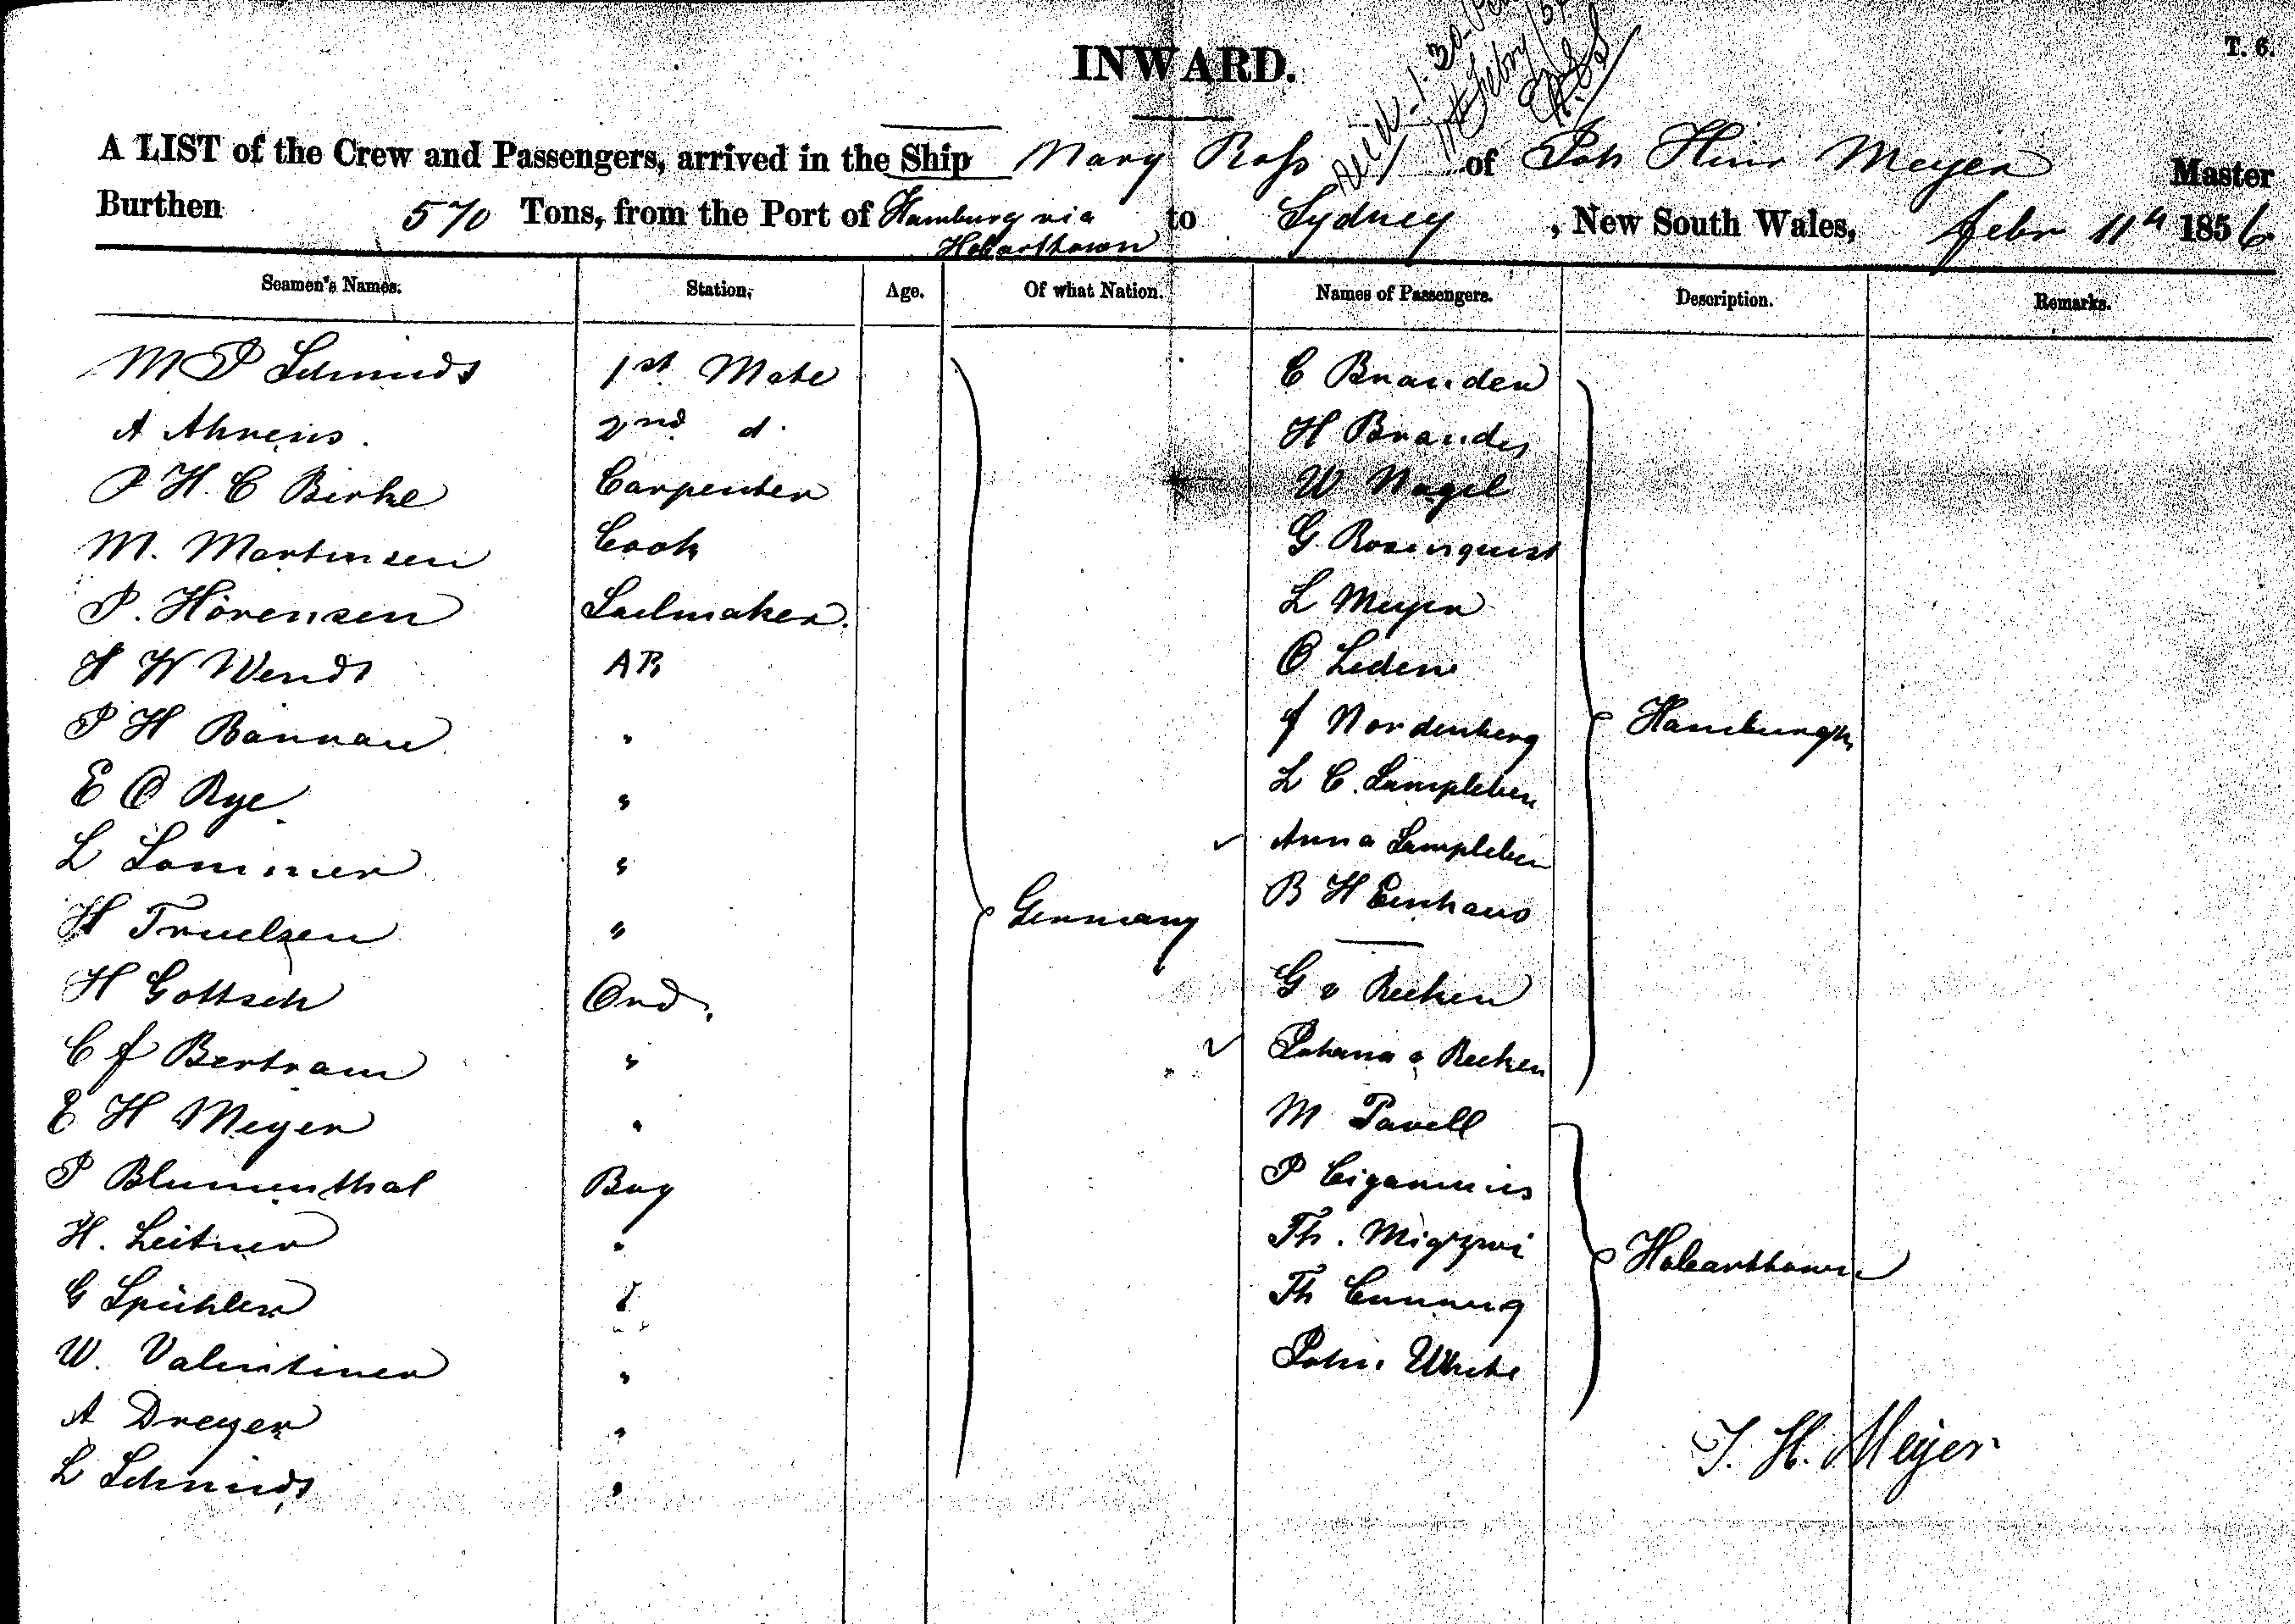 INWARD.
T. 6.
A LIST of the Crew and Passengers, arrived in the Ship Mary Ross of Joh Hinr Meyer Master
Burthen 570 Tons, from the Port of Hamburg via Hobarttown to Sydney, New South Wales, febr 11th 1856
Seamen's Names. Station. Age. Of what Nation. Names of Passengers. Description. Remarks.
M P Schmidt 1st Mate C Branden
A Ahrens. 2nd d. H Brandes
P H. C Birke Carpenter W Nagel
M. Martensen Cook G. Rosenquist
P. Hörensen Sailmaker. L Meyer
H W Wendt AB O Leden
P H Bannau " f Nordenberg Hamburgh
E O Rye " L C. Lampleben
L Sommer " Anna Lampleben
H Truelsen " Germany B H Eenhaus
H Gottsch Ord. G v Recken
C f Bertram " Johana v Recken
E H Meyer " M Pavell
P Blumenthal Boy P
H. Leitner " Th.
G Spühler " Th Cunning Hobarttown
W. Valentiner " John White
A Dreyer "
L Schmidt "
J. H. Meyer